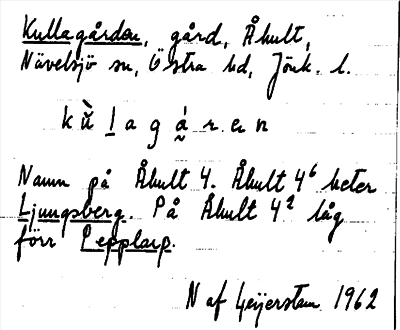 Kullagården, gård, Åhult,
Nävelsjö sn, Östra hd, Jönk. l.
kù̆lagá̰ren
Namn på Åhult 4. Åhult 4⁶ heter
Ljungsberg. På Åhult 4² låg
förr Pepplarp.
N af Geijerstam 1962